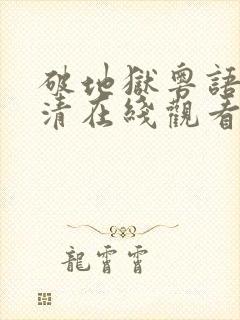 破地獄粵語
清在綫觀看
龍霄霄